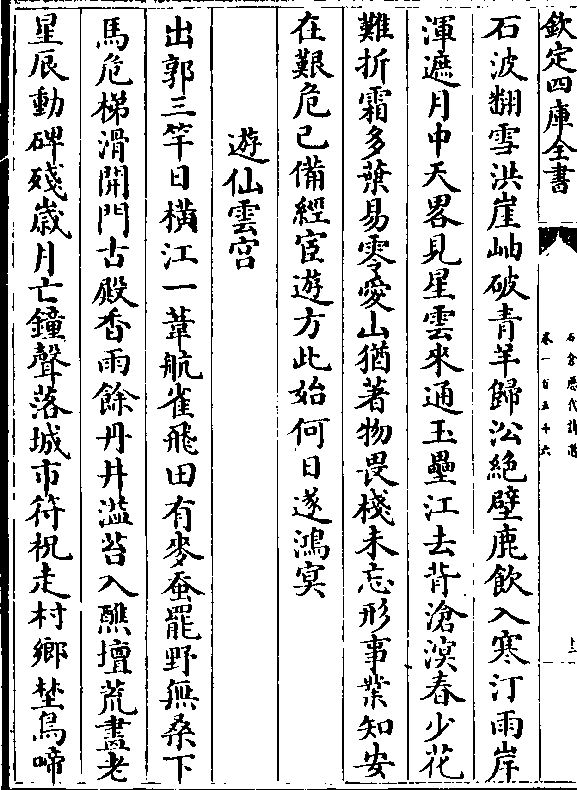 欽定四庫全書
石倉歷代詩選
卷一百五十六
石波翻雪洪崖岫破青羊歸㳂絶壁鹿飲入寒汀雨岸
渾遮月中天畧見星雲來通玉壘江去背滄溟春少花
難折霜多葉易零愛山猶著物畏棧未忘形事業知安
在艱危已備經宦遊方此始何日遂鴻冥
遊仙雲宫
出郭三竿日横江一葦航雀飛田有麥蚕罷野無桑下
馬危梯滑開門古殿香雨餘丹井溢苔入醮壇荒畫老
星辰動碑殘歲月亡鐘聲落城市符祝走村鄉埜鳥啼